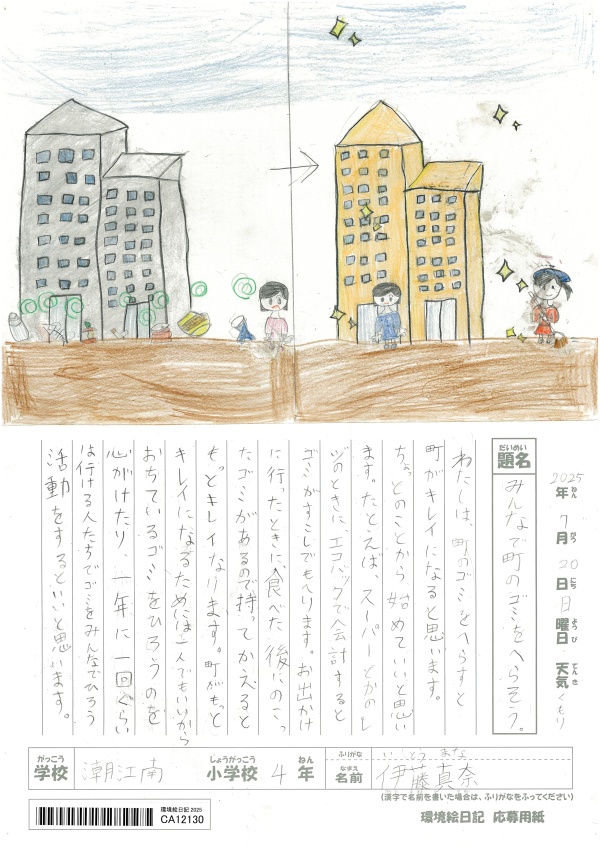 2025年ねん 7月がつ 20日にち 日曜日ようび 天気てんき くもり
だいめい
題名 みんなで町のゴミをへらそう。
わたしは、町のゴミをへらすと
町がキレイになると思います。
ちょっとのことから始めていいと思い
ます。たとえば、スーパーとかのレ
ジのときに、エコバックでお会計すると
ゴミがすこしでもへります。お出かけ
に行ったときに、食べた後にのこっ
たゴミがあるので持ってかえると
もっとキレイなります。町がもっと
キレイになるためには一人でもいいから
おちているゴミをひろうのを
心がけたり 一年に一回ぐらい
は行ける人たちでゴミをみんなでひろう
活動をするといいと思います。
がっこう
学校 潮江南 しょうがっこう
小学校 4 ねん
年
ふりがな いとう まな
なまえ
名前 伊藤真奈
(漢字で名前を書いた場合は、ふりがなをふってください)
環境絵日記 2025
CA12130
環境絵日記 応募用紙